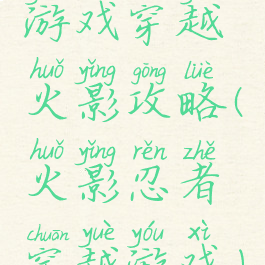 游戏穿越
huǒ yǐng gōng lüè
火影攻略(
huǒ yǐng rěn zhě
火影忍者
chuān yuè yóu xì
穿越游戏)